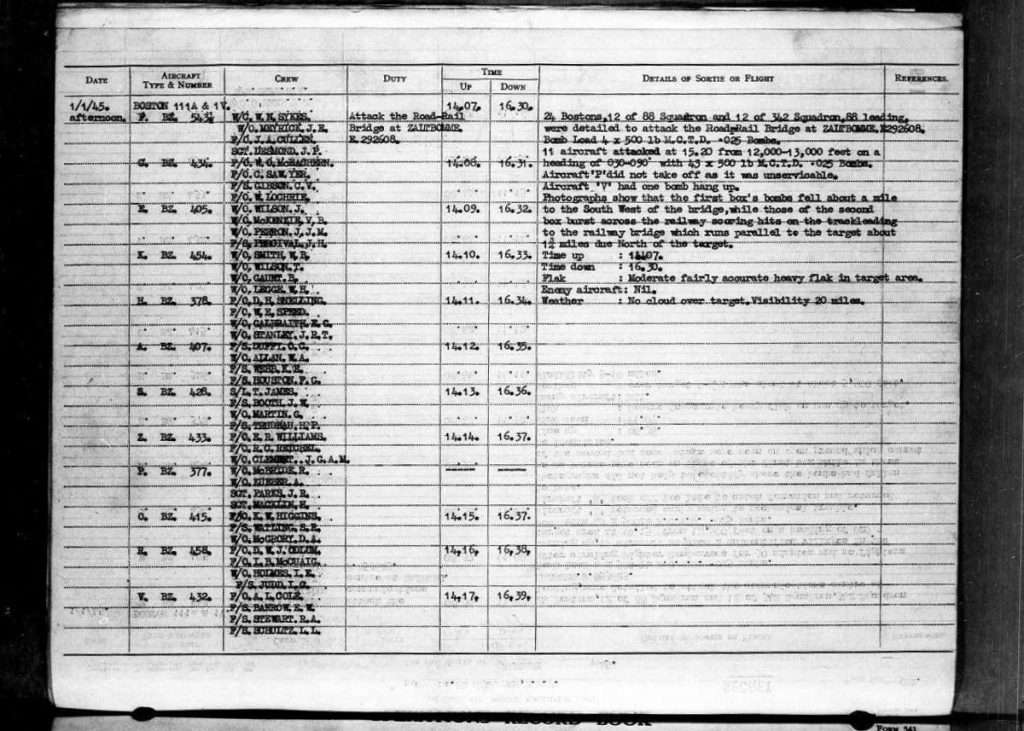 DATE AIRCRAFT TYPE & NUMBER CREW DUTY TIME UP DOWN DETAILS OF SORTIE OR FLIGHT REFERENCES.
1/1/45. BOSTON 111A & 1V. 14.07. 16.30.
afternoon. F. BZ. W/C. W.N. SYKES. Attack the Road-Rail 24 Bostons,12 of 88 Squadron and 12 of 342 Squadron,88 leading,
W/O. MEYRICK, J.E. Bridge at ZALTBOMME. were detailed to attack the Road-Rail Bridge at ZALTBOMME,E292608.
F/O. J.A. CULLEN E.292608. Bomb Load 4 x 500 lb M.C.T.D. .025 Bombs.
SGT. DESMOND, J.P. 11 aircraft attacked at 15.20 from 12,000-13,000 feet on a
G. BZ. 434. 14.08. 16.31. heading of 030-090° with 43 x 500 lb M.C.T.D. .025 Bombs.
F/O. C. SAWYER. Aircraft'P'did not take off as it was unservicable.
F/S. GIBSON, C.V. Aircraft 'V' had one bomb hang up.
F/O. W. LOCHRIE. Photographs show that the first box's bombs fell about a mile
E. BZ. 405. W/O. WILSON, J. 14.09. 16.32. to the South West of the bridge,while those of the second
W/O. McKENZIE, V.R. box burst across the railway scoring hits on the trackleading
W/O. PERRON, J.J.M. to the railway bridge which runs parallel to the target about
F/S. PERCIVAL, J.H. 1½ miles due North of the target.
K. BZ. 454. W/O. SMITH, W.B. 14.10. 16.33. Time up : 14.07.
W/O. WILSON, T. Time down : 16.30.
W/O. GAUNT, B. Flak : Moderate fairly accurate heavy flak in target area.
W/O. LEGGE, W.H. Enemy aircraft: Nil.
H. BZ. 378. F/O. D.H. SNELLING. 14.11. 16.34. Weather : No cloud over target.Visibility 20 miles.
F/O. W.E. SPEED.
W/O. GALBRAITH, E.G.
W/O. STANLEY, J.R.T.
A. BZ. 407. F/S. DUFFY, O.G. 14.12. 16.35.
W/O. ALLAN, W.A.
F/S. WEBB, K.E.
F/S. HOUSTON, F.G.
S. BZ. 428. S/L. T. JAMES. 14.13. 16.36.
F/S. BOOTH, J.W.
W/O. MARTIN, G.
F/S.
Z. BZ. 433. F/O. E.R. WILLIAMS. 14.14. 16.37.
F/O. R.G.
W/O. CLEMENT. J.G.A.M.
P. BZ. 377. W/O. McBRIDE, R. —— ——
W/O.
SGT. PARKS, J.R.
SGT. MACKLIN, H.
O. BZ. 415. F/O. K.W. HIGGINS. 14.15. 16.37.
F/S. WATLING, S.E.
W/O. McGRORY, D.A.
R. BZ. 458. F/O. D.W.J. 14.16. 16.38.
F/O. L.B. McCUAIG.
W/O. HOLMES, I.E.
F/S. JUDD, L.G.
V. BZ. 432. F/O. A.L. COLE. 14.17. 16.39.
F/S. BARROW, E.W.
F/S. STEWART, R.A.
F/S. SCHULTZ, L.L.
RECORD BOOK
FORM 541